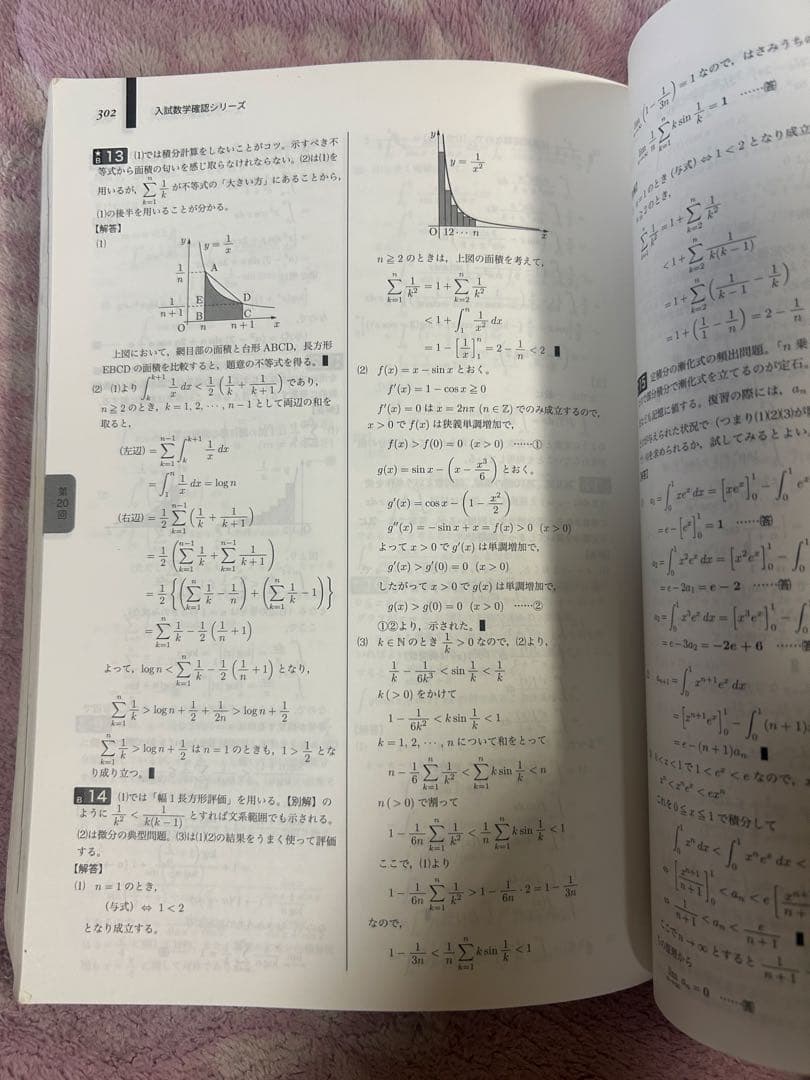 302 入試数学確認シリーズ
★B 13 (1)では積分計算をしないことがコツ。示すべき不
等式から面積の匂いを感じ取らなければならない。(2)は(1)を
用いるが，$\sum_{k=1}^{n}\frac{1}{k}$ が不等式の「大きい方」にあることから，
(1)の後半を用いることが分かる。
【解答】
(1)
y
y=1/x
1/n
A
1/(n+1)
E
D
B
C
O
n
n+1
x
上図において，網目部の面積と台形 ABCD，長方形
EBCD の面積を比較すると，題意の不等式を得る。
(2) (1)より $\int_{k}^{k+1}\frac{1}{x}dx<\frac{1}{2}\left(\frac{1}{k}+\frac{1}{k+1}\right)$ であり，
n≧2 のとき，k=1, 2, …, n−1 として両辺の和を
取ると，
(左辺)=$\sum_{k=1}^{n-1}\int_{k}^{k+1}\frac{1}{x}dx$
=$\int_{1}^{n}\frac{1}{x}dx=\log n$
(右辺)=$\frac{1}{2}\sum_{k=1}^{n-1}\left(\frac{1}{k}+\frac{1}{k+1}\right)$
=$\frac{1}{2}\left(\sum_{k=1}^{n-1}\frac{1}{k}+\sum_{k=1}^{n-1}\frac{1}{k+1}\right)$
=$\frac{1}{2}\left\{\left(\sum_{k=1}^{n}\frac{1}{k}-\frac{1}{n}\right)+\left(\sum_{k=1}^{n}\frac{1}{k}-1\right)\right\}$
=$\sum_{k=1}^{n}\frac{1}{k}-\frac{1}{2}\left(\frac{1}{n}+1\right)$
よって，$\log n<\sum_{k=1}^{n}\frac{1}{k}-\frac{1}{2}\left(\frac{1}{n}+1\right)$ となり，
$\sum_{k=1}^{n}\frac{1}{k}>\log n+\frac{1}{2}+\frac{1}{2n}>\log n+\frac{1}{2}$
$\sum_{k=1}^{n}\frac{1}{k}>\log n+\frac{1}{2}$ は n=1 のときも，$1>\frac{1}{2}$ とな
り成り立つ。
第20回
B 14 (1)では「幅1長方形評価」を用いる。【別解】の
ように $\frac{1}{k^2}<\frac{1}{k(k-1)}$ とすれば文系範囲でも示される。
(2)は微分の典型問題。(3)は(1)(2)の結果をうまく使って評価
する。
【解答】
(1) n=1 のとき，
(与式) ⇔ 1<2
となり成立する。
y
y=1/x²
O 12… n x
n≧2 のときは，上図の面積を考えて，
$\sum_{k=1}^{n}\frac{1}{k^2}=1+\sum_{k=2}^{n}\frac{1}{k^2}$
$<1+\int_{1}^{n}\frac{1}{x^2}dx$
$=1-\left[\frac{1}{x}\right]_{1}^{n}=2-\frac{1}{n}<2$
(2) f(x)=x−sin x とおく。
f′(x)=1−cos x≧0
f′(x)=0 は x=2nπ (n∈ℤ) でのみ成立するので，
x>0 で f(x) は狭義単調増加で，
f(x)>f(0)=0 (x>0) ……①
$g(x)=\sin x-\left(x-\frac{x^3}{6}\right)$ とおく。
$g'(x)=\cos x-\left(1-\frac{x^2}{2}\right)$
g″(x)=−sin x+x=f(x)>0 (x>0)
よって x>0 で g′(x) は単調増加で，
g′(x)>g′(0)=0 (x>0)
したがって x>0 で g(x) は単調増加で，
g(x)>g(0)=0 (x>0) ……②
①②より，示された。
(3) k∈ℕ のとき $\frac{1}{k}>0$ なので，(2)より，
$\frac{1}{k}-\frac{1}{6k^3}<\sin\frac{1}{k}<\frac{1}{k}$
k(>0) をかけて
$1-\frac{1}{6k^2}<k\sin\frac{1}{k}<1$
k=1, 2, …, n について和をとって
$n-\frac{1}{6}\sum_{k=1}^{n}\frac{1}{k^2}<\sum_{k=1}^{n}k\sin\frac{1}{k}<n$
n(>0) で割って
$1-\frac{1}{6n}\sum_{k=1}^{n}\frac{1}{k^2}<\frac{1}{n}\sum_{k=1}^{n}k\sin\frac{1}{k}<1$
ここで，(1)より
$1-\frac{1}{6n}\sum_{k=1}^{n}\frac{1}{k^2}>1-\frac{1}{6n}\cdot 2=1-\frac{1}{3n}$
なので，
$1-\frac{1}{3n}<\frac{1}{n}\sum_{k=1}^{n}k\sin\frac{1}{k}<1$
$\left(1-\frac{1}{3n}\right)=1$ なので，はさみうちの
$\frac{1}{n}\sum_{k=1}^{n}k\sin\frac{1}{k}=1$ ……答
=1のとき (与式) ⇔ 1<2 となり成立
≧2 のとき，
$\sum_{k=1}^{n}\frac{1}{k^2}=1+\sum_{k=2}^{n}\frac{1}{k^2}$
$<1+\sum_{k=2}^{n}\frac{1}{k(k-1)}$
$=1+\sum_{k=2}^{n}\left(\frac{1}{k-1}-\frac{1}{k}\right)$
$=1+\left(\frac{1}{1}-\frac{1}{n}\right)=2-\frac{1}{n}$
15 定積分の漸化式の頻出問題。「n 乗
部分積分で漸化式を立てるのが定石。
も記憶に値する。復習の際には，$a_n$
えられた状況で（つまり(1)(2)(3)が
を求められるか，試してみるとよい。
$a_1=\int_{0}^{1}xe^x dx=\left[xe^x\right]_{0}^{1}-\int_{0}^{1}e^x$
$=e-\left[e^x\right]_{0}^{1}=1$ ……答
$a_2=\int_{0}^{1}x^2e^x dx=\left[x^2e^x\right]_{0}^{1}-\int_{0}$
$=e-2a_1=e-2$ ……答
$a_3=\int_{0}^{1}x^3e^x dx=\left[x^3e^x\right]_{0}^{1}-\int_{0}$
$=e-3a_2=-2e+6$ ……答
$a_{n+1}=\int_{0}^{1}x^{n+1}e^x dx$
$=\left[x^{n+1}e^x\right]_{0}^{1}-\int_{0}^{1}(n+1)$
$=e-(n+1)a_n$
0<x<1 で $1<e^x<e$ なので，
$x^n<x^ne^x<ex^n$
これを 0≦x≦1 で積分して
$\int_{0}^{1}x^n dx<\int_{0}^{1}x^ne^x dx<$
$\left[\frac{x^{n+1}}{n+1}\right]_{0}^{1}<a_n<e\left[\frac{x^{n+1}}{n+1}\right]$
$\frac{1}{n+1}<a_n<\frac{e}{n+1}$
ここで n→∞ とすると $\frac{1}{n+1}$
の原理から
$\lim_{n\to\infty}a_n=0$ ……答